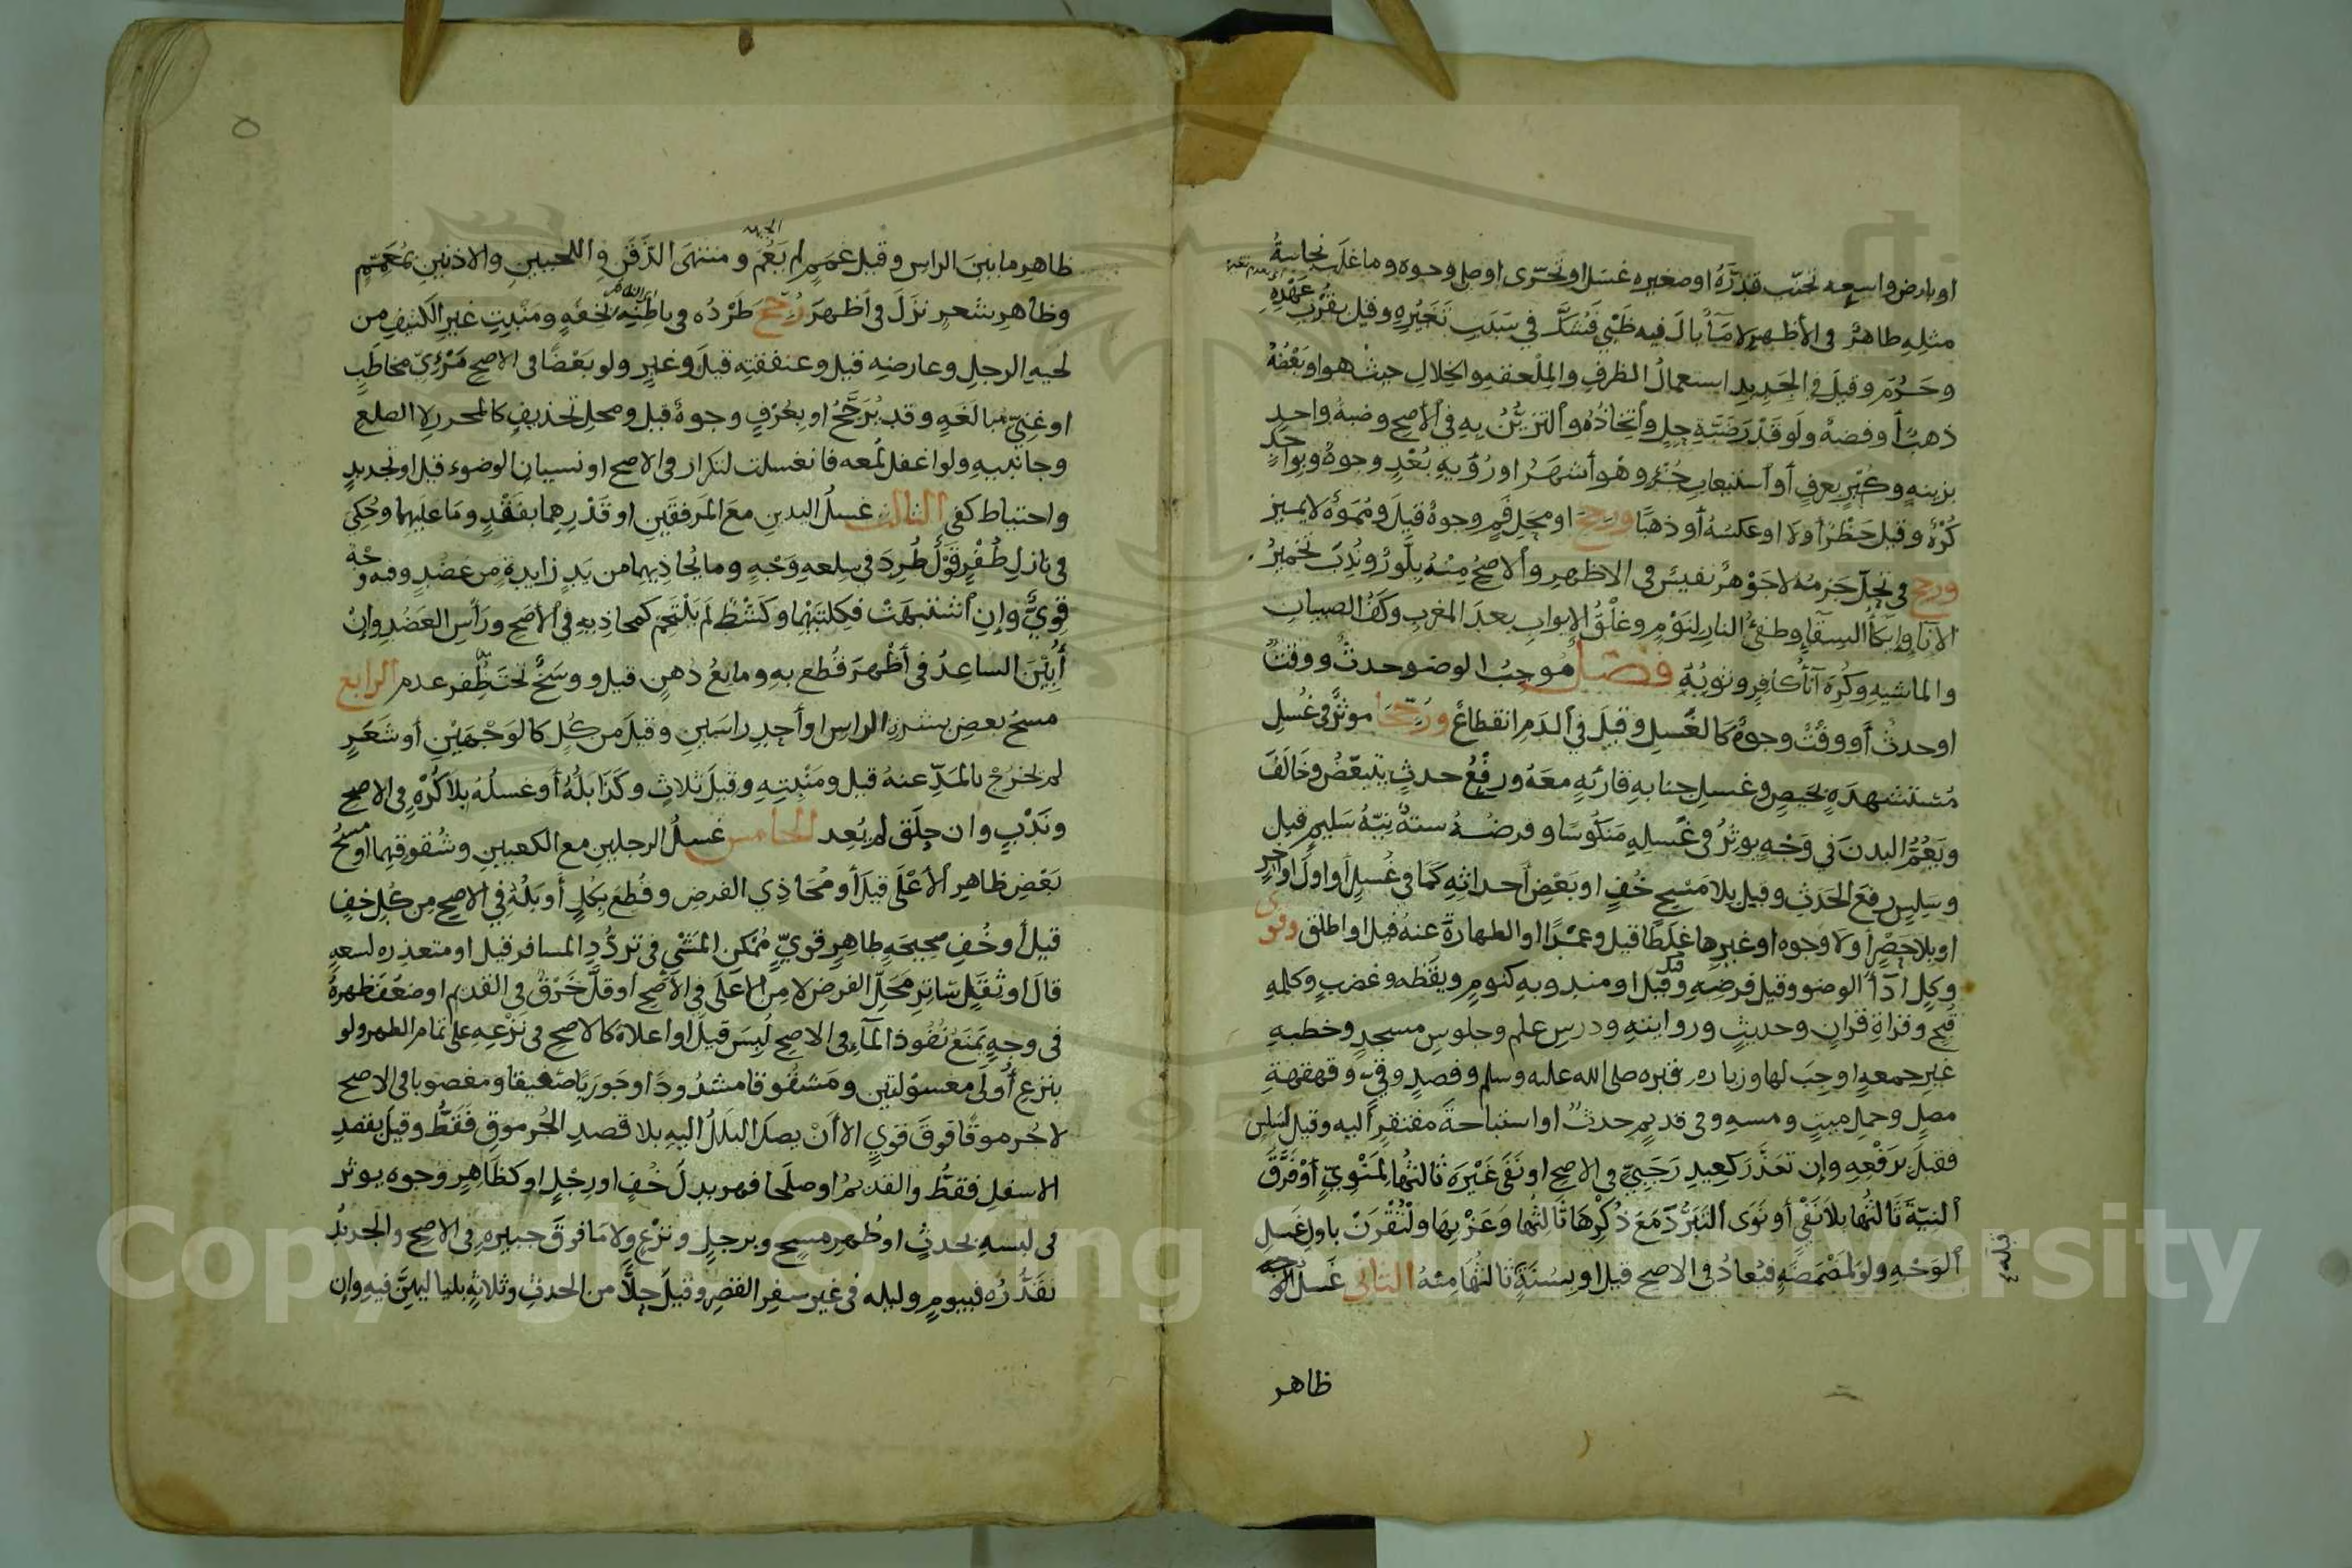 او بارض واسعه تجنب قدره او صغيره غسل او تحرى اوصل وجوه وما غلب نجاسة
مثله طاهر في الأظهر لا ماء بال فيه ظبي فشك في سبب تغيره وقيل بقرب عهده
وحرم وقيل في الجديد استعمال الظرف والملعقه والخلال حيث هو او بعضه
ذهبا أو فضة ولو قدر ضبة حل واتخاذه والتزين به في الأصح وضبة واحد
بزينة وكبر بعرف أو استيعاب جزء وهو أشهر او رؤية بعد وجوه وبواحد
كره وقيل حظر أولا او عكسه أو ذهبا ورجح او محل فم وجوه قيل ومموه لا يميز
ورجح في تجل جزمه لا جوهر نفيس في الاظهر والاصح منه بلور وندب تخمير
الانا وايكأ السقا وطفئ النار لنوم وغلق الابواب بعد المغرب وكف الصبيان
والماشيه وكره آناء كافر وثوبه فصل موجب الوضو حدث ووقت
او حدث أو وقت وجوه كالغسل وقيل في الدم انقطاع ورجحا موثر في غسل
مستشهدة بحيض وغسل جنابه قارئه معه ورفع حدث يتبعض وخالف
ويعم البدن في وجه يوثر في غسله منكوسا وفرضه ستة نية سليم قبل
وسلس رفع الحدث وقيل بلا مسح خف او بعض أحداثه كما في غسل أو اول او اخر
او بلا حصر أولا وجوه او غيرها غلطا قيل وعمدا او الطهارة عنه قيل او اطلق وقوي
وكل اداء الوضو وقيل فرضه وقيل او مندوبه كنوم ويقظه وغضب وكلمه
قبح وقراة قران وحديث وروايته ودرس علم وجلوس مسجد وخطبه
غير جمعه اوجب لها وزياره قبره صلى الله عليه وسلم وفصد وقيء وقهقهة
مصل وحمل ميت ومسه وفي قديم حدث او استباحة مفتقر اليه وقيل لسلس
فقبل برفعه وإن تعذر كعيد رجبي في الاصح او نفى غيره ثالثها لمنوي أو فرق
النية ثالثها بلا نفي أو نوى التبرد مع ذكرها ثالثها وعزبها ولتقرن باول غسل
الوجه ولو لمضمضة فيعاد في الاصح قيل او بسنة ثالثها منه الثاني غسل
ظاهر
٥
ظاهر ما بين الراس وقيل غمم لم يعم ومنتهى الذقن واللحيين والاذنين بمعمم
وظاهر شعر نزل في أظهر رجح طرده في باطنه لخفة ومنبت غير الكثيف من
لحيه الرجل وعارضه قيل وعنفقته قيل وغير ولو بعضا في الاصح مرئي مخاطب
او غني مبالغه وقد يرجح او بعرف وجوه قيل ومحل تحذيف كالمحرر لا الصلع
وجانبيه ولو اغفل لمعه فانغسلت لتكرار في الاصح او نسيان الوضوء قيل او تجديد
واحتياط كفى الثالث غسل اليدين مع المرفقين او قدرهما بفقد وما عليهما وحكي
في نازل ظفر قول طرد في سلعه وجه وما يحاذيهما من يد زايدة من عضد وفيه وجه
قوي وإن اشتبهت فكلتيهما وكشط لم يلتحم كمحاذيه في الأصح ورأس العضد وإن
أبين الساعد في أظهر قطع به وما يع دهن قيل ووسخ تحت ظفر عدم الرابع
مسح بعض بشرة الراس او أحد راسين وقيل من كل كالوجهين أو شعر
لم يخرج بالمد عنه قيل ومنبته وقيل ثلاث وكذا بله أو غسله بلا كره في الاصح
وندب وان حلق لم يعد الخامس غسل الرجلين مع الكعبين وشقوقهما او مسح
بعض ظاهر الأعلى قيل أو محاذي الفرض وقطع بكل أو بله في الاصح من كل خف
قيل أو خف صحيحه طاهر قوي ممكن المشي في تردد المسافر قيل او متعذره لسعه
قال او ثقل ساتر محل الفرض لا من الاعلى في الاصح أو قل خرق في القديم او ضعف ظهره
في وجه يمنع نفوذ الماء في الاصح لبس قيل او اعلاه كالاصح في نزعه على تمام الطهر ولو
بنزع أولى مغسولتين ومشقوقا مشدودا او جوربا ضعيفا ومغصوبا في الاصح
لا جرموقا فوق قوي الا أن يصل البلل اليه بلا قصد الجرموق فقط وقيل بقصد
الاسفل فقط والقديم او صلحا فهو بدل خف او رجل او كظاهر وجوه يوثر
في لبسه بحدث او طهر مسح وبرجل ونزع ولا ما فوق جبيره في الاصح والجديد
نقدره فبيوم وليله في غير سفر القصر وقيل حلا من الحدث وثلاثة بلياليهن فيه وإن